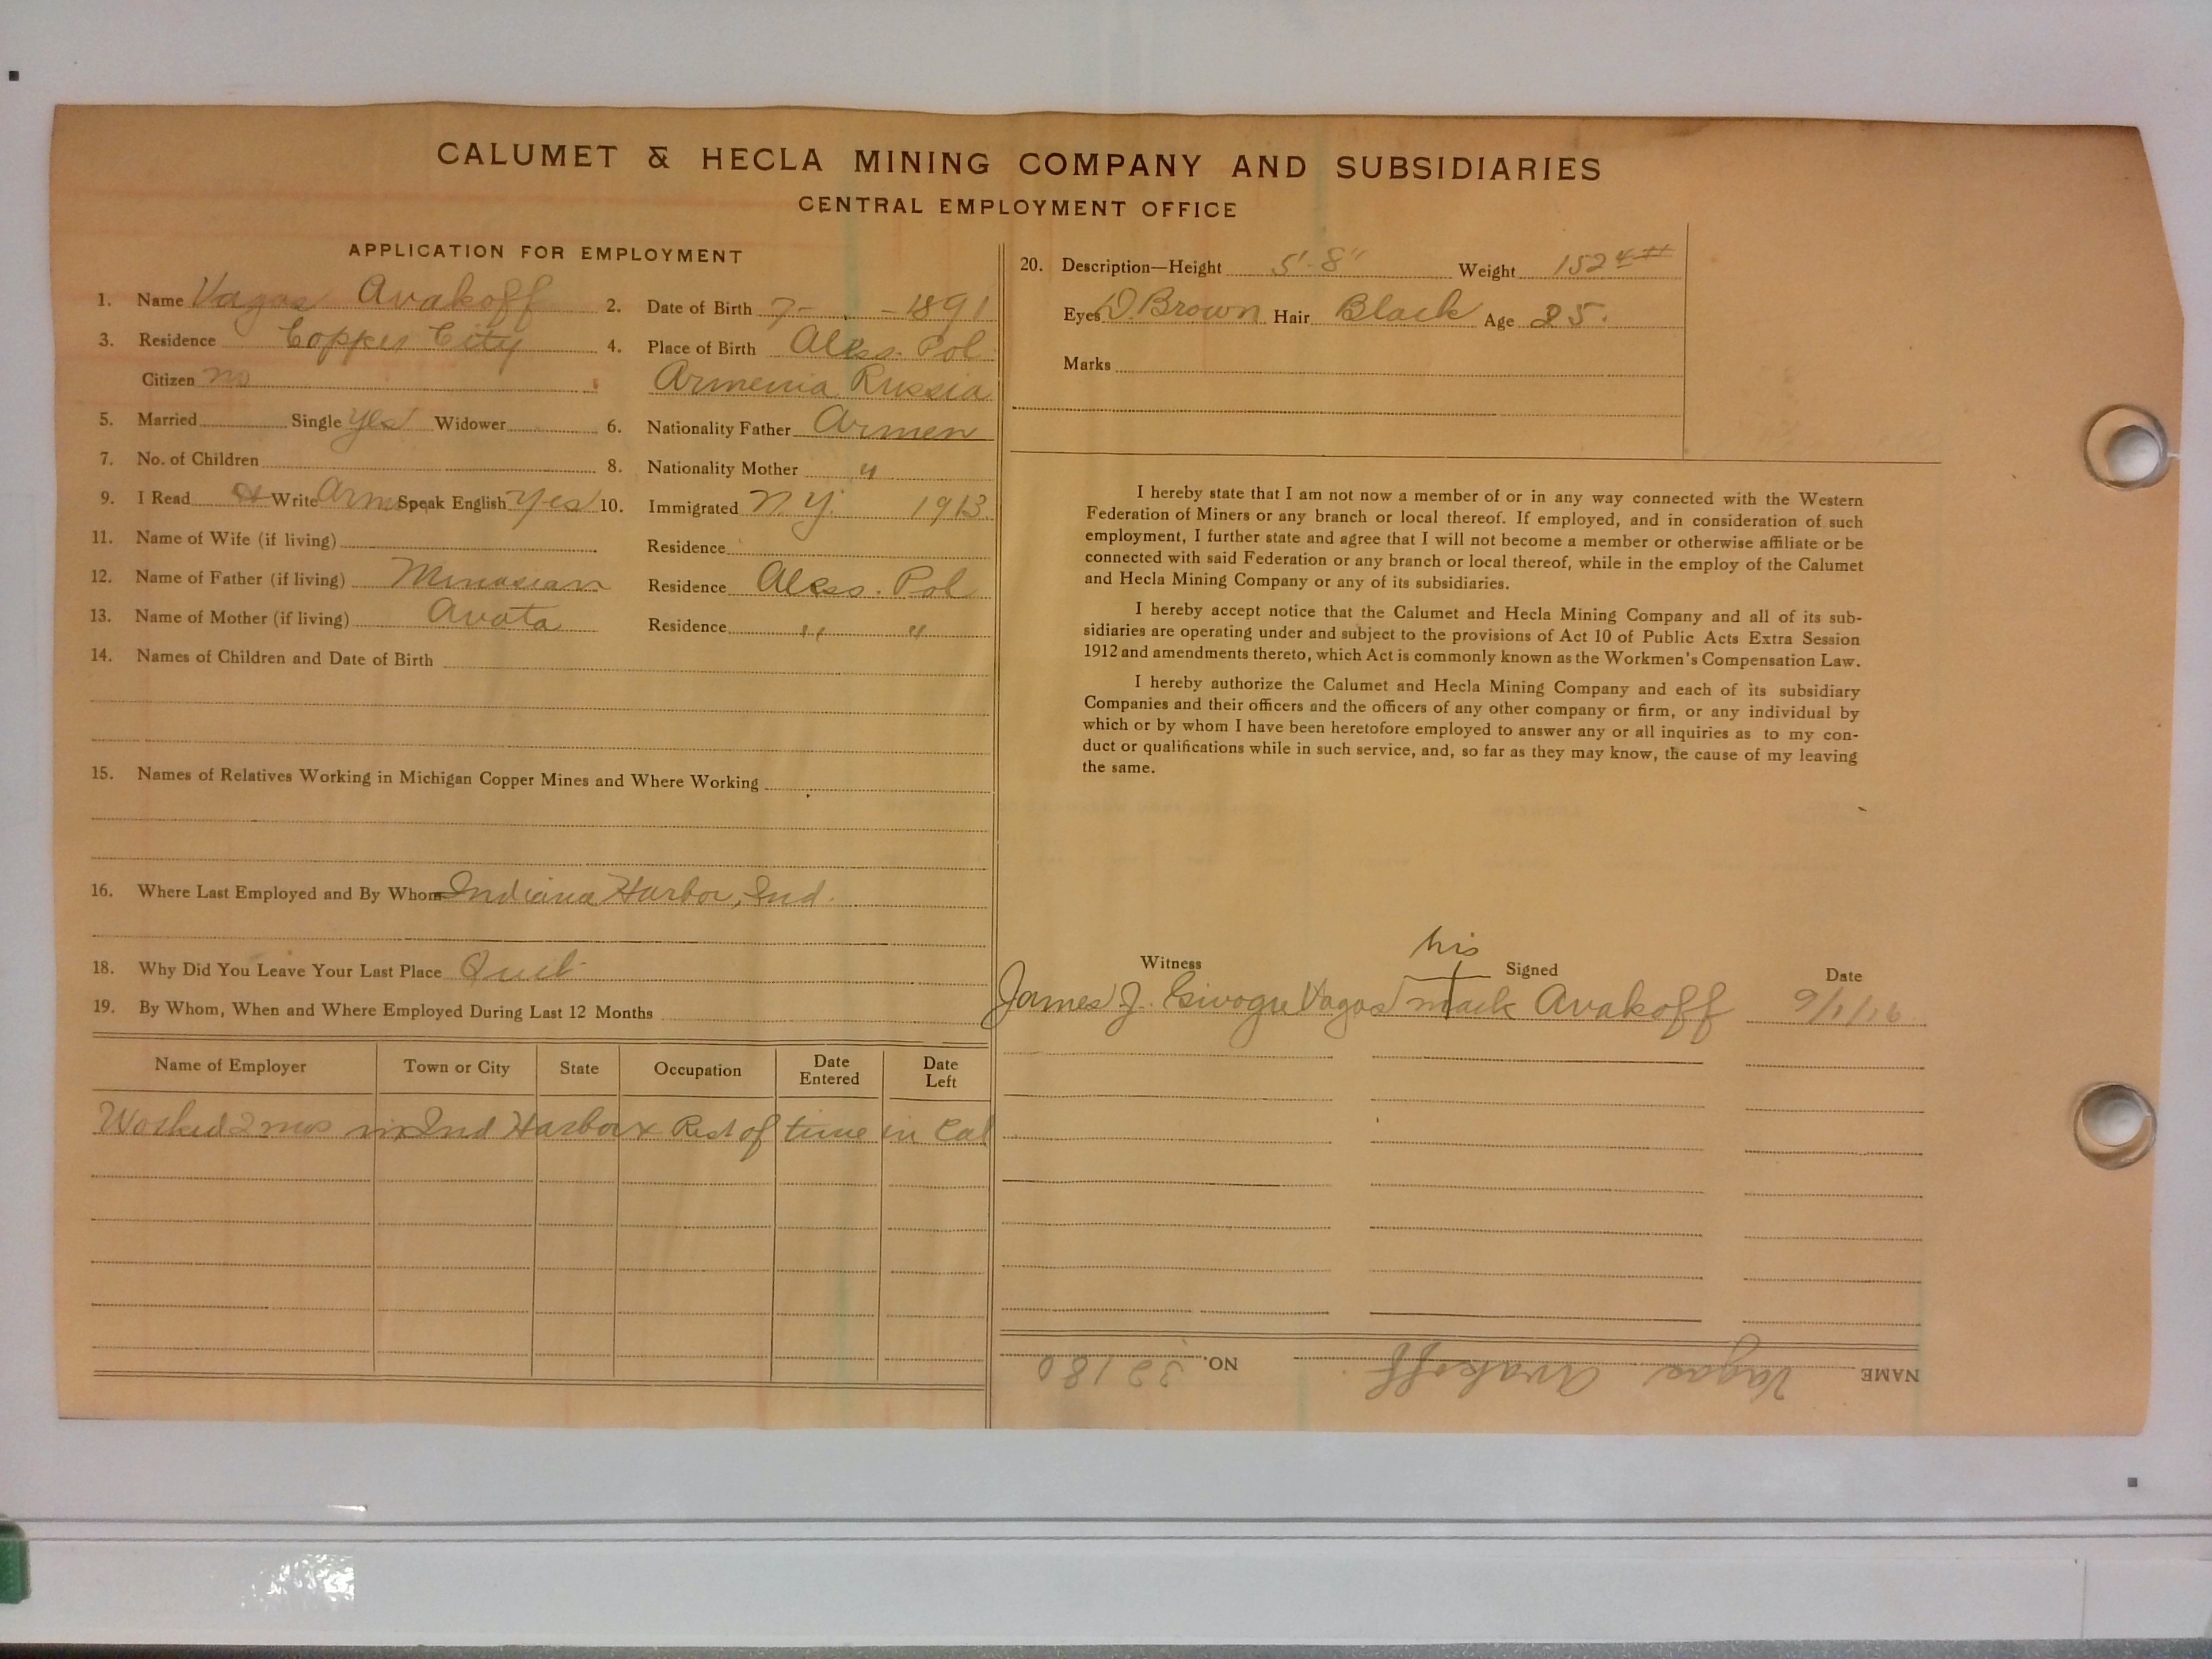 CALUMET & HECLA MINING COMPANY AND SUBSIDIARIES
CENTRAL EMPLOYMENT OFFICE
APPLICATION FOR EMPLOYMENT
1. Name Vagas Avakoff 2. Date of Birth 7- - 1891
3. Residence Copper City 4. Place of Birth Aless. Pol
Citizen no Armenia Russia
5. Married Single yes Widower 6. Nationality Father Armen
7. No. of Children 8. Nationality Mother "
9. I Read & Write Arm Speak English yes 10. Immigrated N.Y. 1913
11. Name of Wife (if living) Residence
12. Name of Father (if living) Minasian Residence Aless. Pol
13. Name of Mother (if living) Avata Residence " "
14. Names of Children and Date of Birth
15. Names of Relatives Working in Michigan Copper Mines and Where Working
16. Where Last Employed and By Whom Indiana Harbor, Ind.
18. Why Did You Leave Your Last Place Quit
19. By Whom, When and Where Employed During Last 12 Months
Name of Employer Town or City State Occupation Date Entered Date Left
Worked 2 mos in Ind Harbor & Rest of time in Cal
20. Description—Height 5'-8" Weight 152
Eyes D. Brown Hair Black Age 25.
Marks
I hereby state that I am not now a member of or in any way connected with the Western
Federation of Miners or any branch or local thereof. If employed, and in consideration of such
employment, I further state and agree that I will not become a member or otherwise affiliate or be
connected with said Federation or any branch or local thereof, while in the employ of the Calumet
and Hecla Mining Company or any of its subsidiaries.
I hereby accept notice that the Calumet and Hecla Mining Company and all of its sub-
sidiaries are operating under and subject to the provisions of Act 10 of Public Acts Extra Session
1912 and amendments thereto, which Act is commonly known as the Workmen's Compensation Law.
I hereby authorize the Calumet and Hecla Mining Company and each of its subsidiary
Companies and their officers and the officers of any other company or firm, or any individual by
which or by whom I have been heretofore employed to answer any or all inquiries as to my con-
duct or qualifications while in such service, and, so far as they may know, the cause of my leaving
the same.
his
Witness Signed Date
James J. Vagas mark Avakoff 9/1/16
NAME Vagas Avakoff NO. 32180